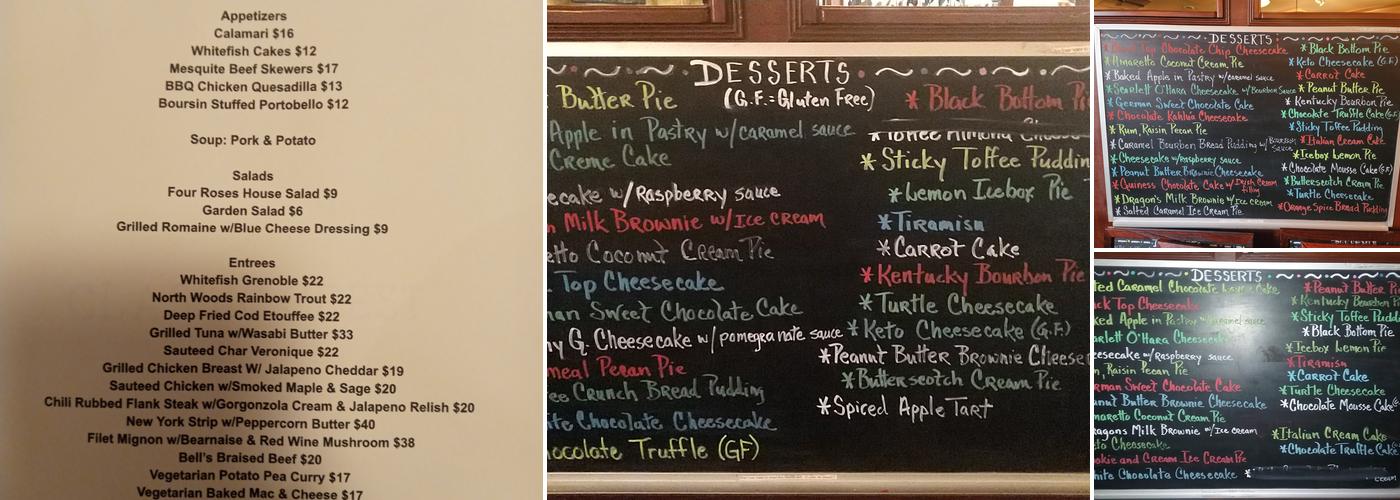 Appetizers
Calamari $16
Whitefish Cakes $12
Mesquite Beef Skewers $17
BBQ Chicken Quesadilla $13
Boursin Stuffed Portobello $12
Soup: Pork & Potato
Salads
Four Roses House Salad $9
Garden Salad $6
Grilled Romaine w/Blue Cheese Dressing $9
Entrees
Whitefish Grenoble $22
North Woods Rainbow Trout $22
Deep Fried Cod Etouffee $22
Grilled Tuna w/Wasabi Butter $33
Sauteed Char Veronique $22
Grilled Chicken Breast W/ Jalapeno Cheddar $19
Sauteed Chicken w/Smoked Maple & Sage $20
Chili Rubbed Flank Steak w/Gorgonzola Cream & Jalapeno Relish $20
New York Strip w/Peppercorn Butter $40
Filet Mignon w/Bearnaise & Red Wine Mushroom $38
Bell's Braised Beef $20
Vegetarian Potato Pea Curry $17
Vegetarian Baked Mac & Cheese $17
DESSERTS
(G.F.=Gluten Free)
Butter Pie
Apple in Pastry w/caramel sauce
Creme Cake
ecake w/Raspberry sauce
Milk Brownie w/Ice cream
etto Coconut Cream Pie
Top Cheesecake
an Sweet Chocolate Cake
y G. Cheesecake w/pomegranate sauce
meal Pecan Pie
ee Crunch Bread Pudding
te Chocolate Cheesecake
ocolate Truffle (GF)
*Black Bottom Pi
*Toffee Almond
*Sticky Toffee Puddin
*Lemon Icebox Pie
*Tiramisu
*Carrot Cake
*Kentucky Bourbon Pie
*Turtle Cheesecake
*Keto Cheesecake (G.F.)
*Peanut Butter Brownie Cheesec
*Butterscotch Cream Pie
*Spiced Apple Tart
DESSERTS
Top Chocolate Chip Cheesecake
*Amaretto Coconut Cream Pie
*Baked Apple in Pastry w/caramel sauce
*Scarlett O'Hara Cheesecake w/Bourbon Sauce
*German Sweet Chocolate Cake
*Chocolate Kahlua Cheesecake
*Rum, Raisin Pecan Pie
*Caramel Bourbon Bread Pudding w/Bourbon Sauce
*Cheesecake w/Raspberry sauce
*Peanut Butter Brownie Cheesecake
*Guiness Chocolate Cake w/Irish Cream filling
*Dragon's Milk Brownie w/Ice cream
*Salted Caramel Ice Cream Pie
*Black Bottom Pie
*Keto Cheesecake (G.F.)
*Carrot Cake
*Peanut Butter Pie
*Kentucky Bourbon Pie
*Chocolate Truffle Cake
*Sticky Toffee Pudding
*Italian Cream Cake
*Icebox Lemon Pie
*Chocolate Mousse Cake
*Butterscotch Cream Pie
*Turtle Cheesecake
*Orange Spice Bread Pudding
DESSERTS
ted Caramel Chocolate Cake
ck Top Cheesecake
ked Apple in Pastry w/caramel sauce
arlett O'Hara Cheesecake
eesecake w/Raspberry sauce
m, Raisin Pecan Pie
rman Sweet Chocolate Cake
nut Butter Brownie Cheesecake
maretto Coconut Cream Pie
ragons Milk Brownie w/Ice cream
eto Cheesecake
okie and Cream Ice Cream Pie
hite Chocolate Cheesecake
*Peanut Butter Pi
*Kentucky Bourbon
*Sticky Toffee Pudd
*Black Bottom Pie
*Icebox Lemon Pie
*Tiramisu
*Carrot Cake
*Turtle Cheesecake
*Chocolate Mousse Cake
*Italian Cream Cake
*Chocolate Truffle Cake